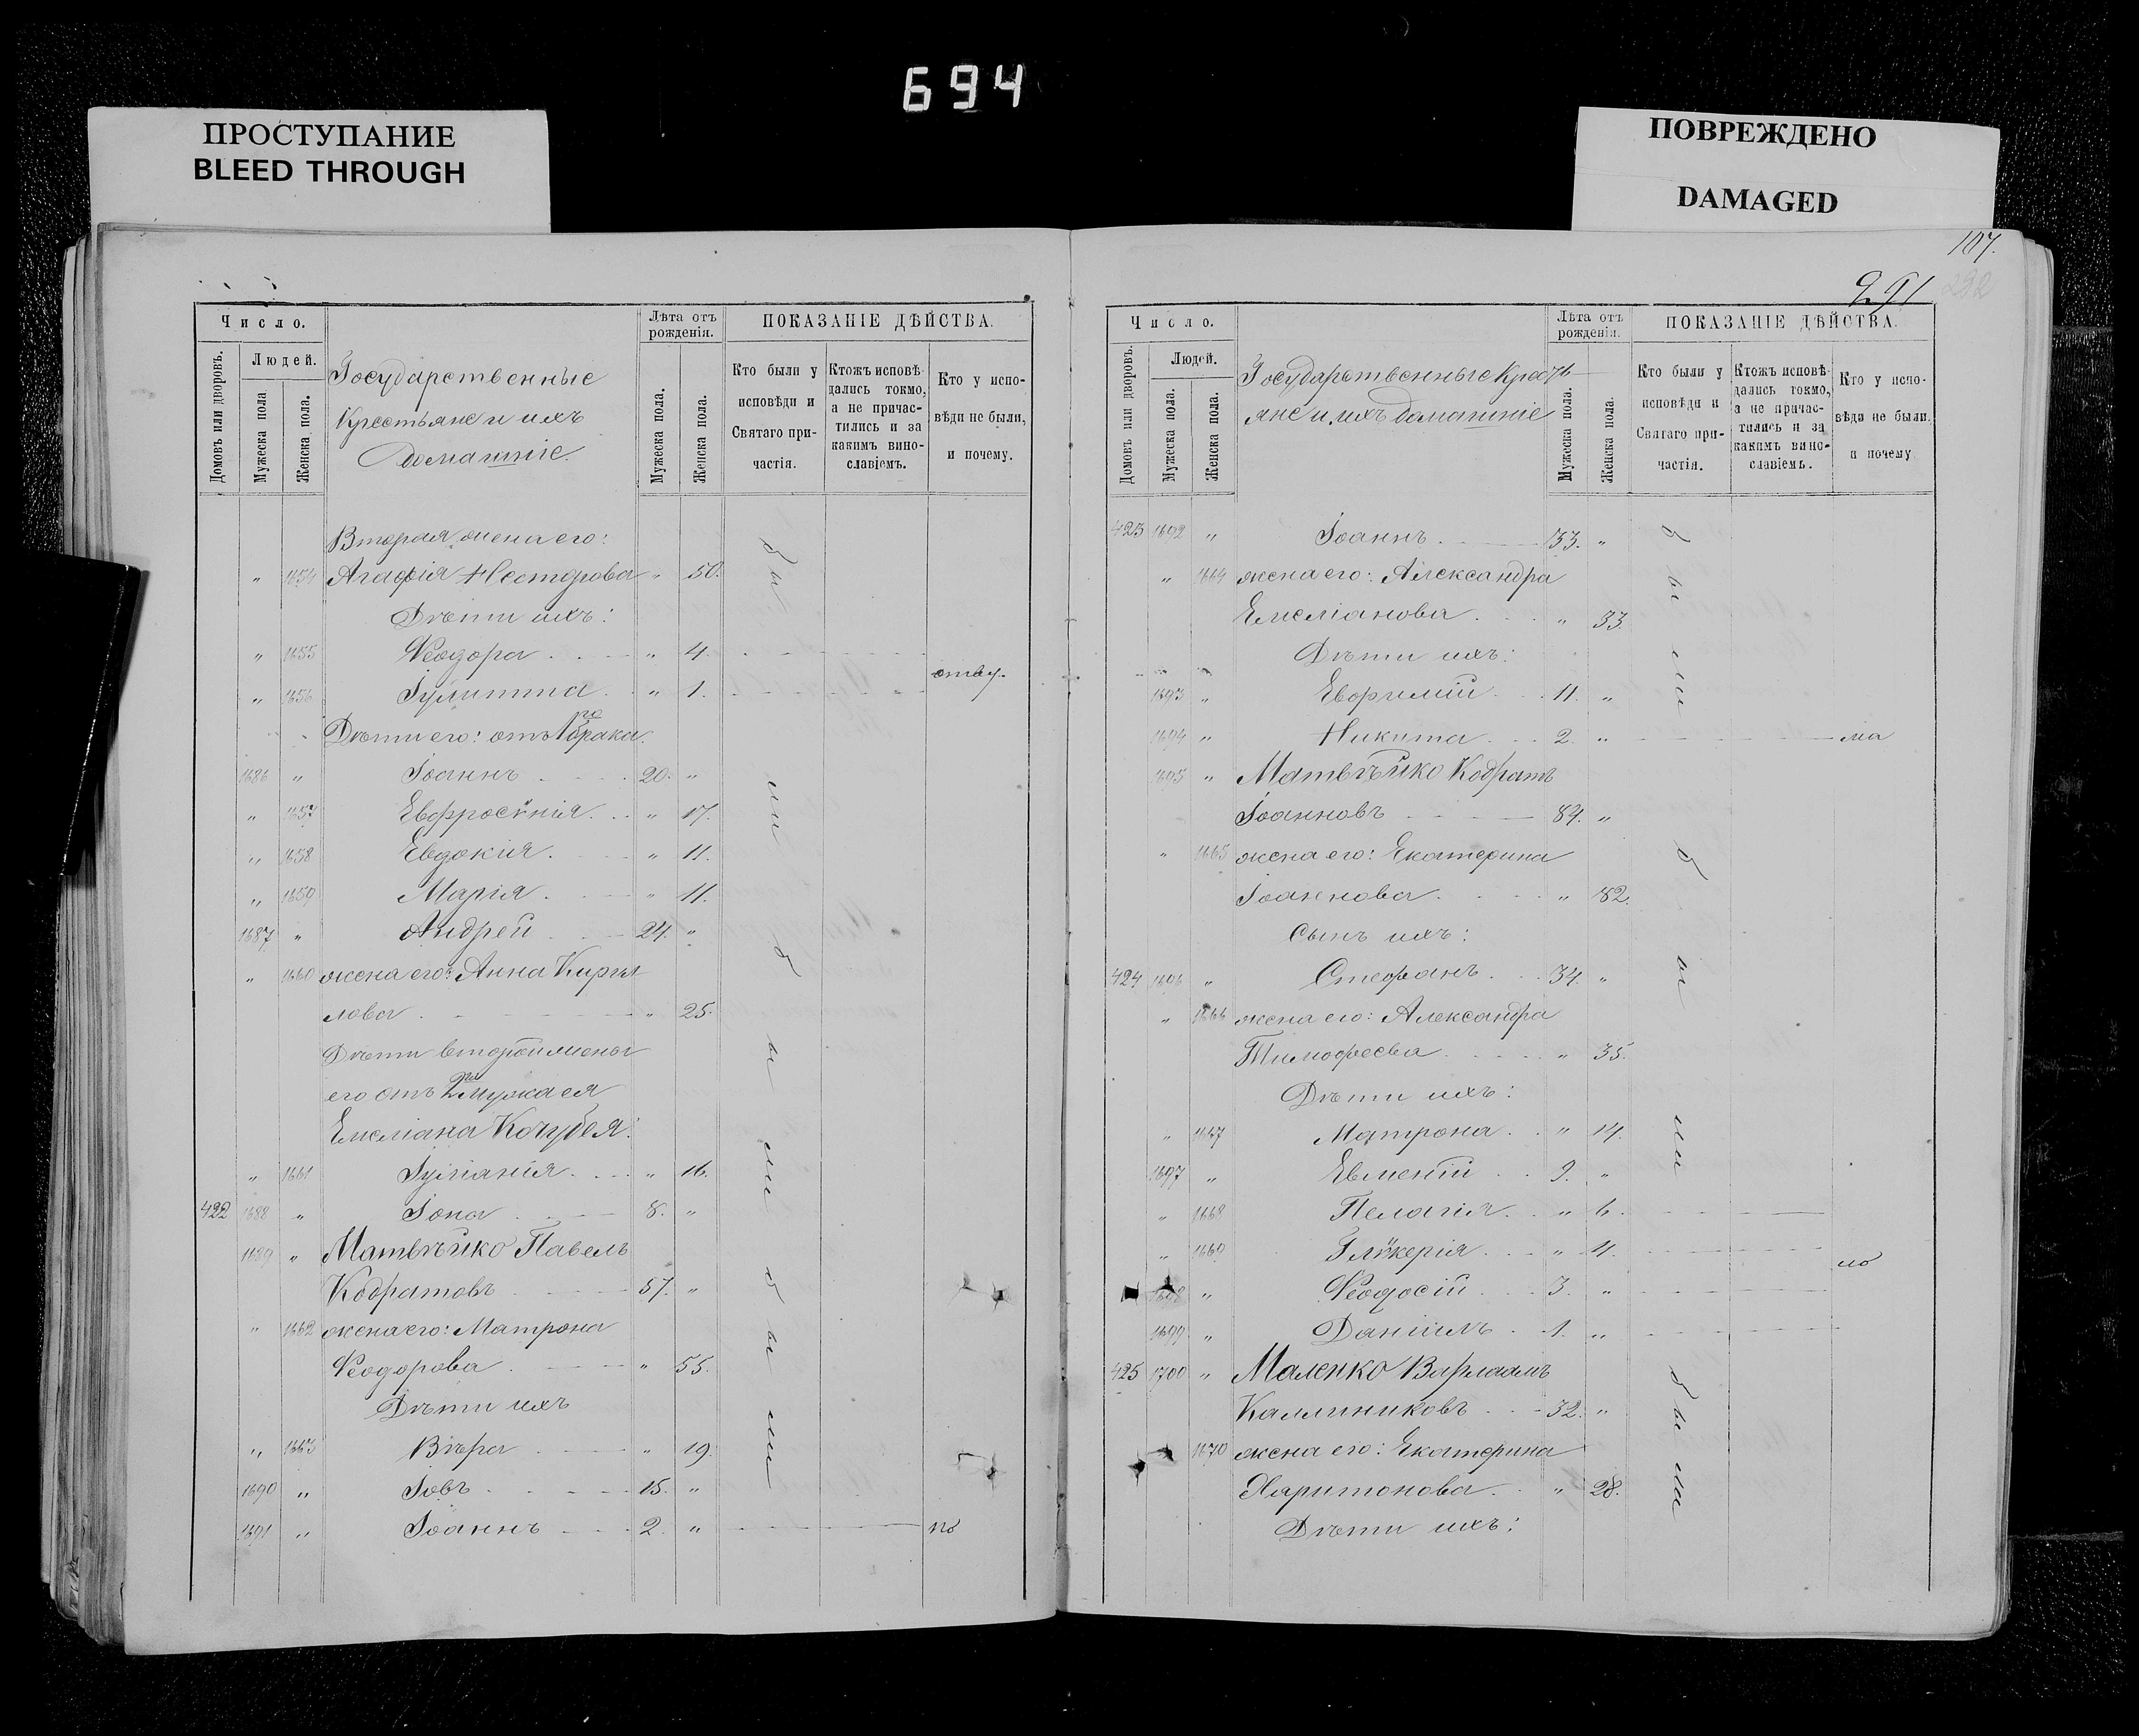 694
ПРОСТУПАНИЕ
BLEED THROUGH
ПОВРЕЖДЕНО
DAMAGED
107.
291
Число.
Домовъ или дворовъ.
Людей.
Мужеска пола
Женска пола.
Государственные
Крестьяне и ихъ
домашніе.
Лѣта отъ рожденія.
Мужеска пола.
Женска пола.
ПОКАЗАНІЕ ДѢЙСТВА.
Кто были у исповѣди и Святаго причастія.
Ктожъ исповѣдались токмо, а не причастились и за какимъ винословіемъ.
Кто у исповѣди не были, и почему.
Вторая жена его:
" 1654 Агафія Несторова " 50.
Дѣти ихъ:
" 1655 Ѳеодора " 4.
" 1656 Іулитта " 1.
Дѣти его: отъ 1го брака.
1686 " Іоаннъ 20. "
" 1657 Евфросѵнія " 17.
" 1658 Евдокія " 11.
" 1659 Марія " 11.
1687 " Андрей 24. "
" 1660 жена его: Анна Кирил
лова " 25.
Дѣти второй жены
его отъ 2го мужа ея
Емеліана Кочубея:
" 1661 Іуліанія " 16.
422 1688 " Іона 8. "
1689 " Матвѣйко Павелъ
Кодратовъ 57. "
" 1662 жена его: Матрона
Ѳеодорова " 55.
Дѣти ихъ
" 1663 Вѣра " 19.
1690 " Іовъ 15. "
1691 " Іоаннъ 2. "
были
были
были
Число.
Домовъ или дворовъ.
Людей.
Мужеска пола.
Женска пола.
Государственные Кресть
яне и ихъ домашніе
Лѣта отъ рожденія.
Мужеска пола.
Женска пола.
ПОКАЗАНІЕ ДѢЙСТВА.
Кто были у исповѣди и Святаго причастія.
Ктожъ исповѣдались токмо, а не причастились и за какимъ винословіемъ.
Кто у исповѣди не были, и почему
423 1692 " Іоаннъ 33. "
" 1664 жена его: Александра
Емеліанова " 33.
Дѣти ихъ:
1693 " Евфимій 11. "
1694 " Никита 2. "
1695 " Матвѣйко Кодратъ
Іоанновъ 84. "
" 1665 жена его: Екатерина
Іоаннова " 82.
Сынъ ихъ:
424 1696 " Стефанъ 34. "
" 1666 жена его: Александра
Тимофеева " 35.
Дѣти ихъ:
" 1667 Матрона " 14.
1697 " Евменій 9. "
" 1668 Пелагія " 6.
" 1669 Глѵкерія " 4.
1698 " Ѳеодосій 3. "
1699 " Даніилъ 1. "
425 1700 " Маленко Варлаамъ
Каллиниковъ 32. "
1670 жена его: Екатерина
Харитонова " 28.
Дѣти ихъ:
были
были
были